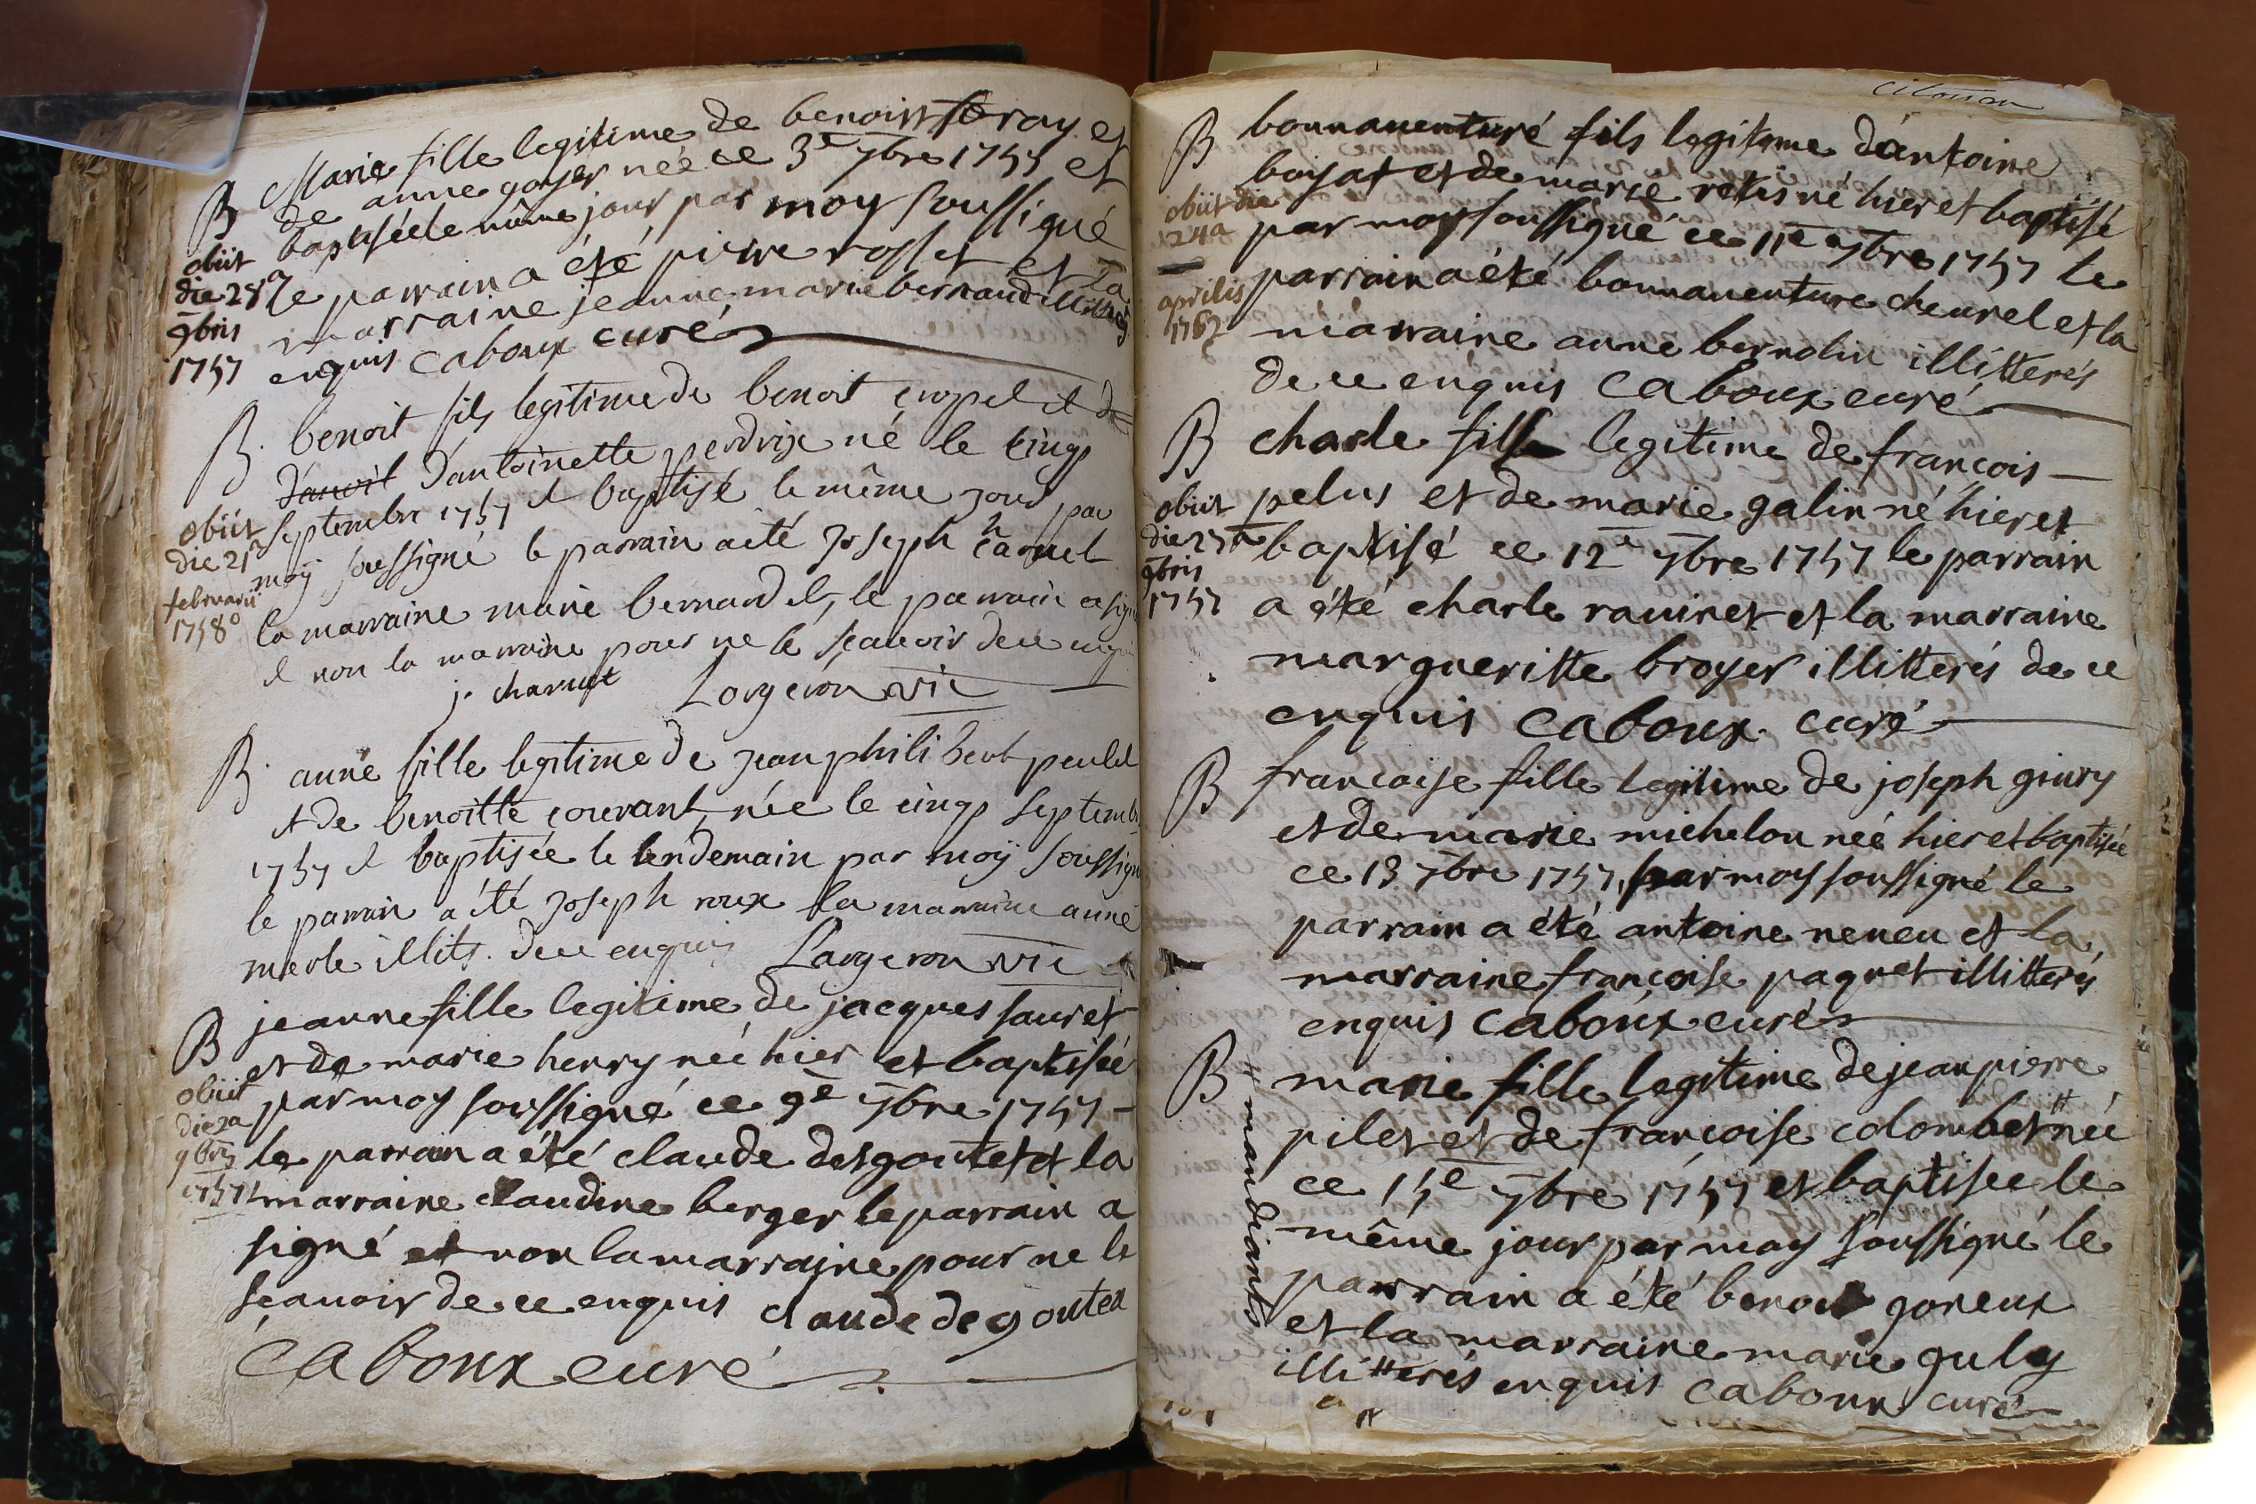 B Marie fille legitime de benoist feray et
de anne goyer née ce 3e 7bre 1757 et
baptisée le même jour par moy soussigné
le parrain a été pierre rosset et la
marraine jeanne marie bernand illitterés
enquis caboux curé
obiit
die 28a
9bris
1757
B. benoit fils legitime de benoit et de
d'anoit d'antoinette perdrix né le cinq
septembre 1757 et baptisé le même jour par
moÿ soussigné le parrain a été joseph charuet
la marraine marie bernard et, le parrain a signé
et non la marraine pour ne le sçavoir de ce enquis
j. charuet Largeron vic
obiit
die 21a
februarii
1758o
B. anne fille legitime de jean philibert peulet
et de benoitte couvrant née le cinq septembre
1757 et baptisée le lendemain par moÿ soussigné
le parrain a été joseph roux la marraine anne
merle illits. de ce enquis Largeron vic
B jeanne fille legitime de jacques sauret
et de marie henry née hier et baptisée
par moy soussigné ce 9e 7bre 1757
le parrain a été claude desgoutet et la
marraine claudine berger le parrain a
signé et non la marraine pour ne le
sçavoir de ce enquis claude degoutea
caboux curé
obiit
die 2a
9bris
1757
B bonnaventuré fils legitime d'antoine
boyat et de marie retis né hier et baptisé
par moy soussigné ce 11e 7bre 1757 le
parrain a été bonnaventure cheurel et la
marraine anne bernolin illitterés
de ce enquis caboux curé
obiit die
24a
aprilis
1767
B charle fils legitime de françois
pelus et de marie galin né hier et
baptisé ce 12e 7bre 1757 le parrain
a été charle raviret et la marraine
margueritte broyer illitterés de ce
enquis caboux curé
obiit
die 27a
9bris
1757
B francoise fille legitime de joseph givry
et de marie michelon née hier et baptisée
ce 13 7bre 1757 par moy soussigné le
parrain a été antoine neveu et la
marraine françoise paquet illitterés
enquis caboux curé
B marie fille legitime de jean pierre
pilet et de françoise colombet # née
ce 15e 7bre 1757 et baptisée le
même jour par moy soussigné le
parrain a été benoit goreux
et la marraine marie guly
illitterés enquis caboux curé
# mandiants